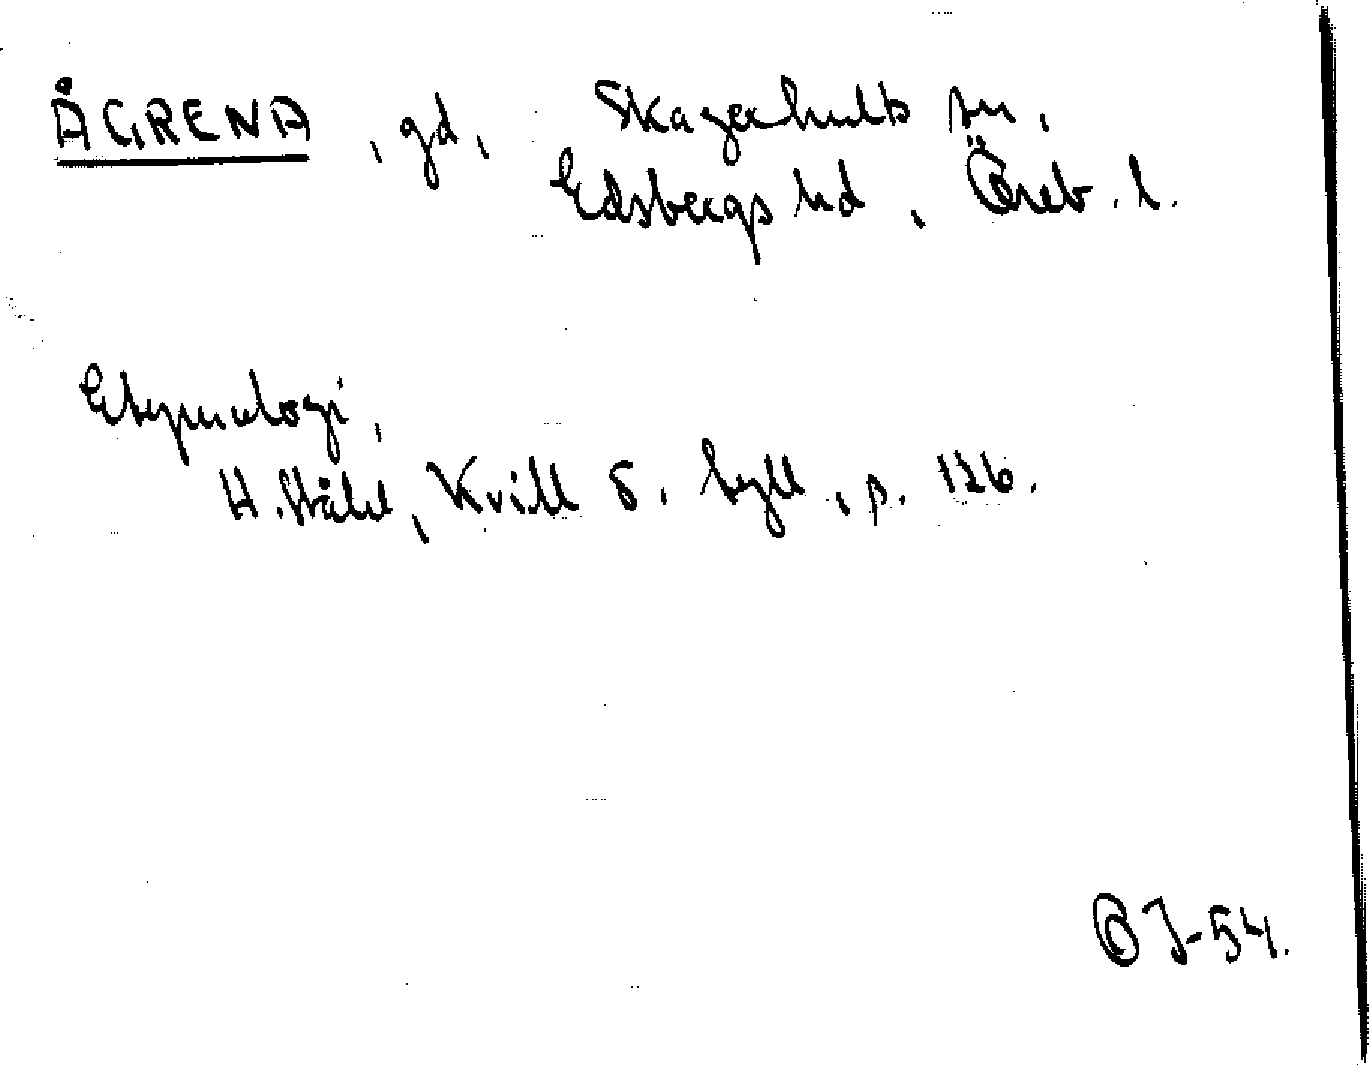 ÅGRENA, gd, Skagerhults sn,
Edsbergs hd, Öreb. l.
Etymologi,
H. Ståhl, Kvill o. Tyll, p. 126.
OJ-54.